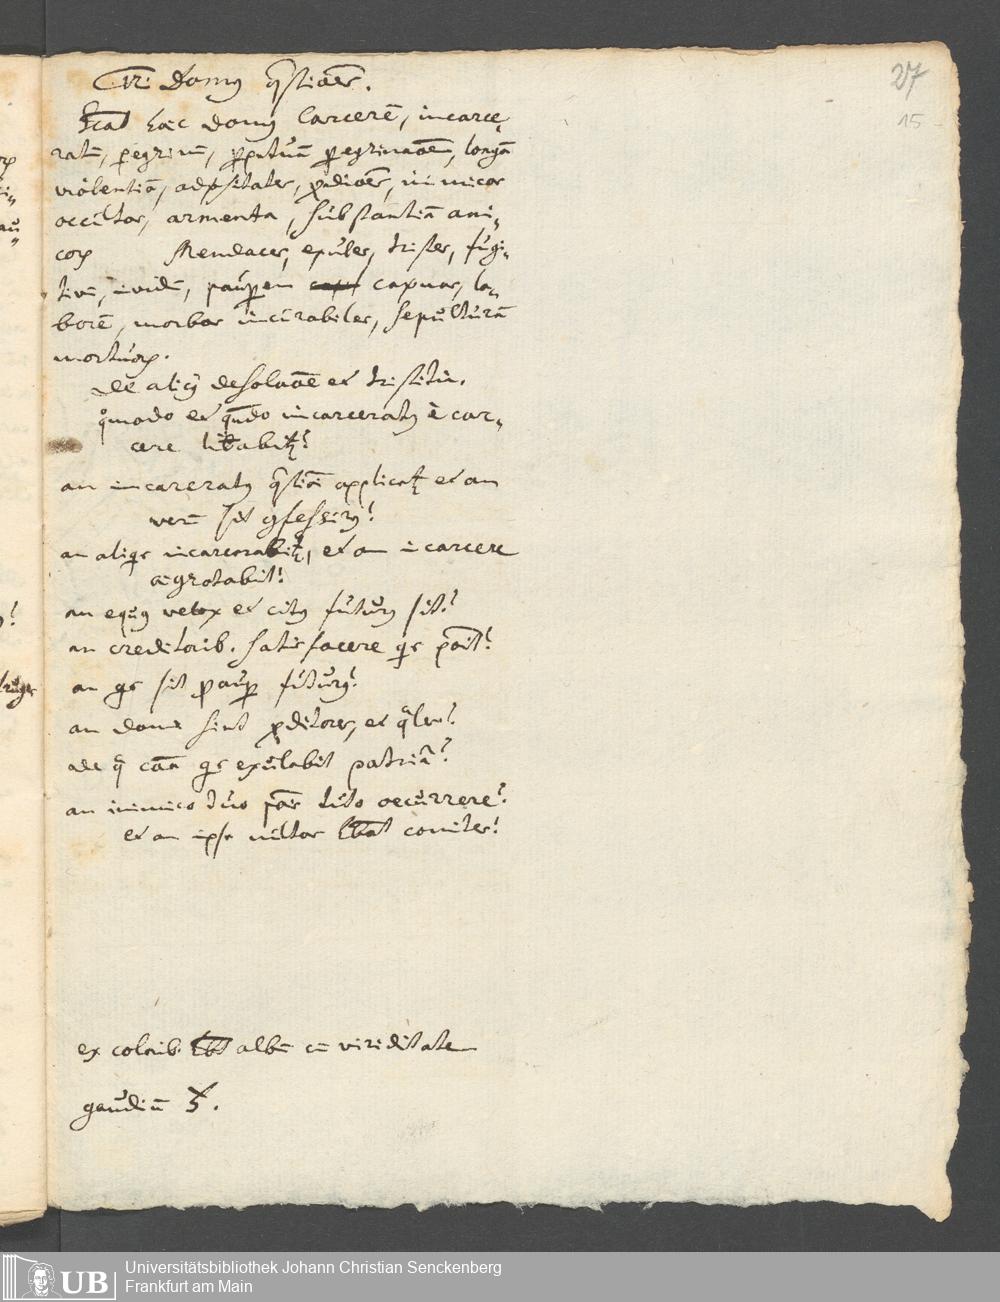 27
15
12. Domus qstiões.
hãc domus Carcerẽ, incarce,
ratũ, peregrinũ, ppetuã peregrinaõem, longã
violentiã, pditões, inimicos
occultos, armenta, substantiã ami,
corũ Mendaces, exules, tristes, fugi,
tivũ, invidũ, paupem captivos, la,
borẽ, morbos incurabiles, sepulturã
mortuorũ.
De alicuius desolaõe et tristitia.
qmodo et qñdo incarceratus è car,
cere libabitr?
an incarceratus qstiõi applicetr et an
verũ sit gfessurus?
an aliqis incarcerabitr, et an i carcere
aegrotabit?
an equus velox et citus futurus sit?
an creditorib. satisfacere qis poãit?
an qis sit paup futurus?
an domi sint pditores, et qles?
de q cãa qis exulabit patriã?
an inimico tuo põis tuto occurrere?
et an ipse multos comites?
ex colorib. albũ cũ viriditate
gaudiũ ♄.
Universitätsbibliothek Johann Christian Senckenberg
Frankfurt am Main
UB